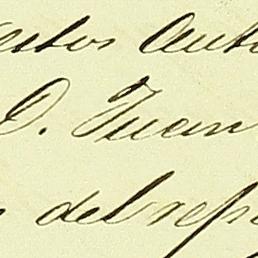 estos Auto
D. Juan
del rep